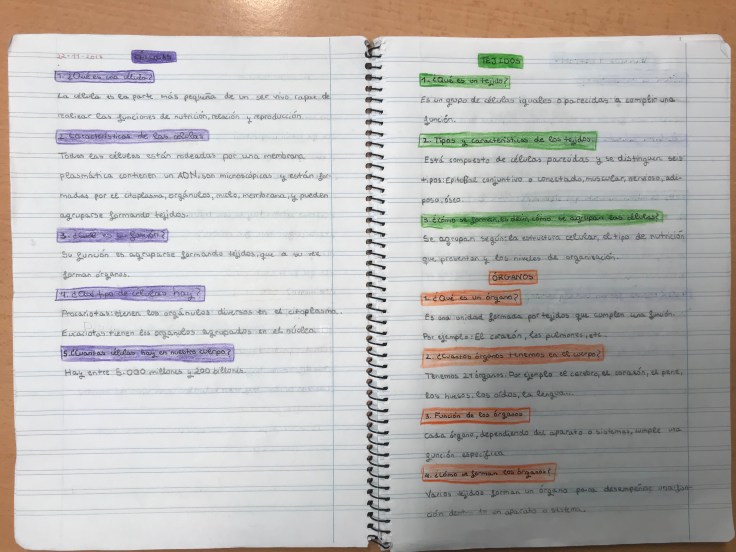 22-11-2017
CÉLULAS
1. ¿Qué es una célula?
La célula es la parte más pequeña de un ser vivo capaz de
realizar las funciones de nutrición, relación y reproducción.
2. Características de las células
Todas las células están rodeadas por una membrana
plasmática contienen un ADN, son microscópicas y están for-
madas por el citoplasma, orgánulos, núcleo, membrana, y pueden
agruparse formando tejidos.
3. ¿Cuál es su función?
Su función es agruparse formando tejidos, que a su vez
forman órganos.
4. ¿Qué tipo de células hay?
Procariotas: tienen los orgánulos diversos en el citoplasma.
Eucariotas: tienen los orgánulos agrupados en el núcleo.
5. ¿Cuántas células hay en nuestro cuerpo?
Hay entre 5.000 millones y 200 billones
TEJIDOS
1. ¿Qué es un tejido?
Es un grupo de células iguales o parecidas a cumplir una
función.
2. Tipos y características de los tejidos.
Está compuesto de células parecidas y se distinguen seis
tipos: Epitelial, conjuntivo o conectado, muscular, nervioso, adi-
poso, óseo.
3. ¿Cómo se forman, es decir, cómo se agrupan las células?
Se agrupan según la estructura celular, el tipo de nutrición
que presentan y los niveles de organización.
ÓRGANOS
1. ¿Qué es un órgano?
Es una unidad formada por tejidos que cumplen una función.
Por ejemplo: El corazón, los pulmones, etc...
2. ¿Cuántos órganos tenemos en el cuerpo?
Tenemos 27 órganos. Por ejemplo el cerebro, el corazón, el pene,
los huesos, los oídos, la lengua...
3. Función de los órganos.
Cada órgano, dependiendo del aparato o sistemas, cumple una
función específica
4. ¿Cómo se forman los órganos?
Varios tejidos forman un órgano para desempeñar una fun-
ción dentro de un aparato o sistema.